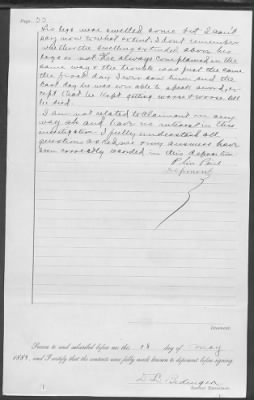 Page 33
his legs were swelled some but I can't
say now to what extent. I don't remember
whether the swelling extended above his
legs or not. He always complained in the
same way & the trouble was just the same
the first day I ever saw him and the
last day he was ever able to speak a word, ex-
cept that he kept getting worse & worse till
he died.
I am not related to claimant in any
way sh and have no interest in this
investigation. I fully understand all
questions asked me & my answers have
been correctly recorded in this deposition
Deponent
Deponent.
Sworn to and subscribed before me this 18 day of May
188, and I certify that the contents were fully made known to deponent before signing.
D. L.
Special Examiner.